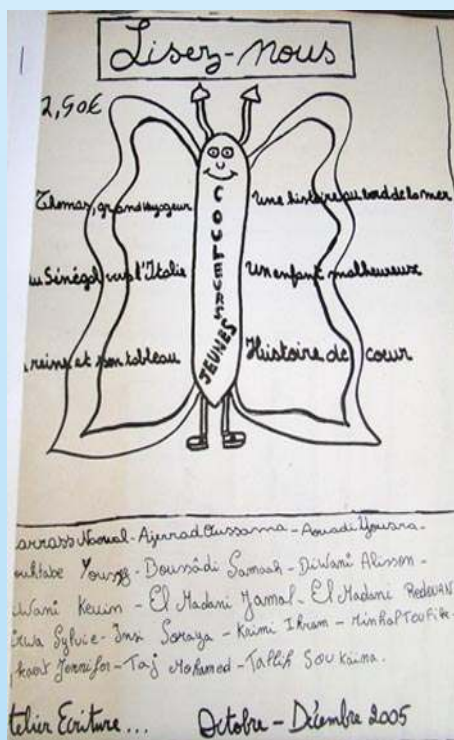 Lisez-nous
2,90€
Thomas, grand voyageur
Une histoire au bord de la mer
Sénégal vers l'Italie
Un enfant malheureux
reine et son tableau
Histoire de coeur
COULEURS JEUNES
Naoual - Ajerrad Oussama - Aouadi Yousra -
Boussâdi Samaah - Diwani Alisson -
Kevin - El Madani Jamal - El Madani REDOUAN
Sylvie - Insi Soraya - Kaimi Ikram - Minhal Toufik -
Jennifer - Taj Mohamed - Taflih Soukaïna.
Ecriture... Octobre - Décembre 2005